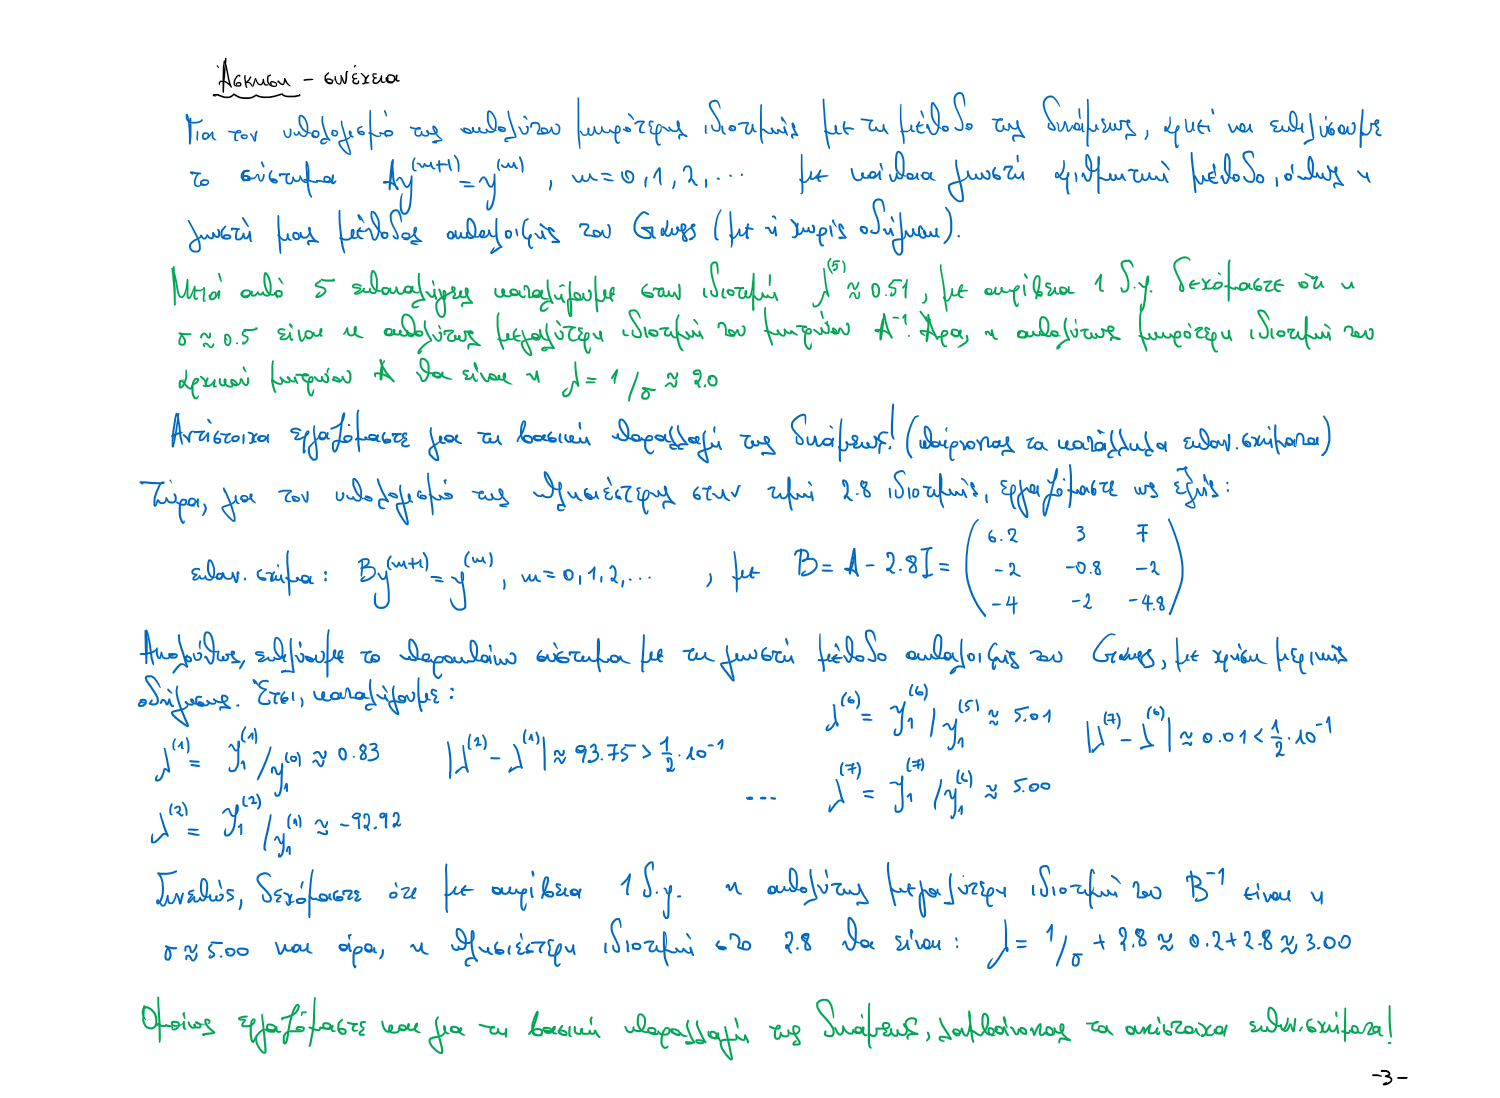 Άσκηση - συνέχεια
Για τον υπολογισμό της απολύτου μικρότερης ιδιοτιμής με τη μέθοδο της δυνάμεως, αρκεί να επιλύσουμε
το σύστημα Ay^(m+1) = y^(m) , m=0,1,2,... με κάποια γνωστή αριθμητική μέθοδο, όπως η
γνωστή μας μέθοδος απαλοιφής του Gauss (με ή χωρίς οδήγηση).
Μετά από 5 επαναλήψεις καταλήγουμε στην ιδιοτιμή λ^(5) ≈ 0.51, με ακρίβεια 1 δ.ψ. δεχόμαστε ότι η
σ ≈ 0.5 είναι η απολύτως μεγαλύτερη ιδιοτιμή του μητρώου A^-1. Άρα, η απολύτως μικρότερη ιδιοτιμή του
αρχικού μητρώου A θα είναι η λ = 1/σ ≈ 2.0
Αντίστοιχα εργαζόμαστε για τη βασική παραλλαγή της δυνάμεως! (παίρνοντας τα κατάλληλα επαν. σχήματα)
Τώρα, για τον υπολογισμό της πλησιέστερης στην τιμή 2.8 ιδιοτιμής, εργαζόμαστε ως εξής:
επαν. σχήμα: By^(m+1) = y^(m), m=0,1,2,... , με B = A - 2.8I = ( 6.2 3 7
-2 -0.8 -2
-4 -2 -4.8 )
Ακολούθως, επιλύουμε το παραπάνω σύστημα με τη γνωστή μέθοδο απαλοιφής του Gauss, με χρήση μερικής
οδήγησης. Έτσι, καταλήγουμε:
λ^(1) = y_1^(1) / y_1^(0) ≈ 0.83 |λ^(2) - λ^(1)| ≈ 93.75 > 1/2 · 10^-1
λ^(2) = y_1^(2) / y_1^(1) ≈ -92.92
...
λ^(6) = y_1^(6) / y_1^(5) ≈ 5.01 |λ^(7) - λ^(6)| ≈ 0.01 < 1/2 · 10^-1
λ^(7) = y_1^(7) / y_1^(6) ≈ 5.00
Συνεπώς, δεχόμαστε ότι με ακρίβεια 1 δ.ψ. η απολύτως μεγαλύτερη ιδιοτιμή του B^-1 είναι η
σ ≈ 5.00 και άρα, η πλησιέστερη ιδιοτιμή στο 2.8 θα είναι: λ = 1/σ + 2.8 ≈ 0.2+2.8 ≈ 3.00
Ομοίως εργαζόμαστε και για τη βασική παραλλαγή της δυνάμεως, λαμβάνοντας τα αντίστοιχα επαν. σχήματα!
-3-